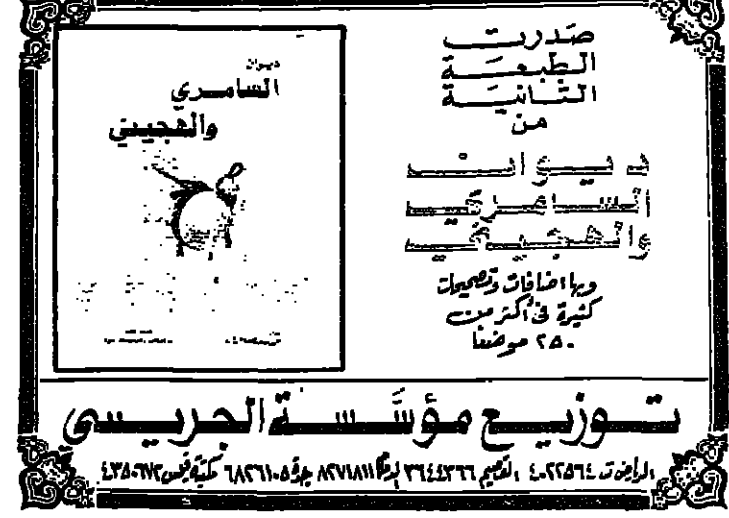 صدرت
الطبعة
الثانية
من
ديوان
السامري
والهجيني
وبها اضافات وتصحيحات
كثيرة في أكثر من
٢٥٠ موضعا
ديوان
السامري
والهجيني
توزيع مؤسسة الجريسي
الرياض ت ٤٠٢٢٥٦٤ القصيم ٣٦٤٤٣٦٦ الدمام ٨٢٧١٨١١ جدة ٦٨٢٦١٠٥